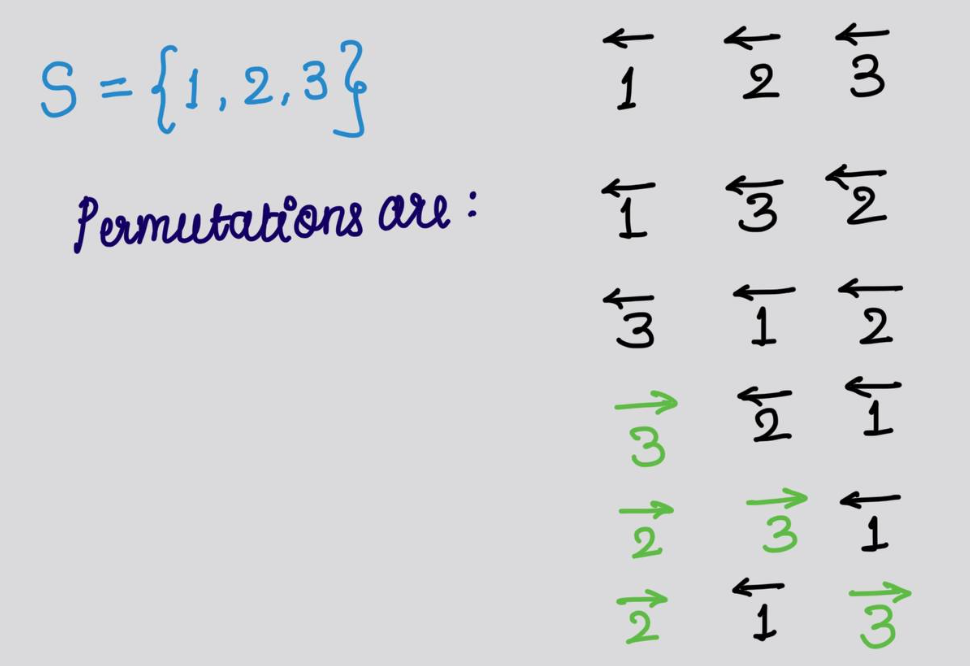 S = {1, 2, 3}
Permutations are :
←1 ←2 ←3
←1 ←3 ←2
←3 ←1 ←2
→3 ←2 ←1
→2 →3 ←1
→2 ←1 →3